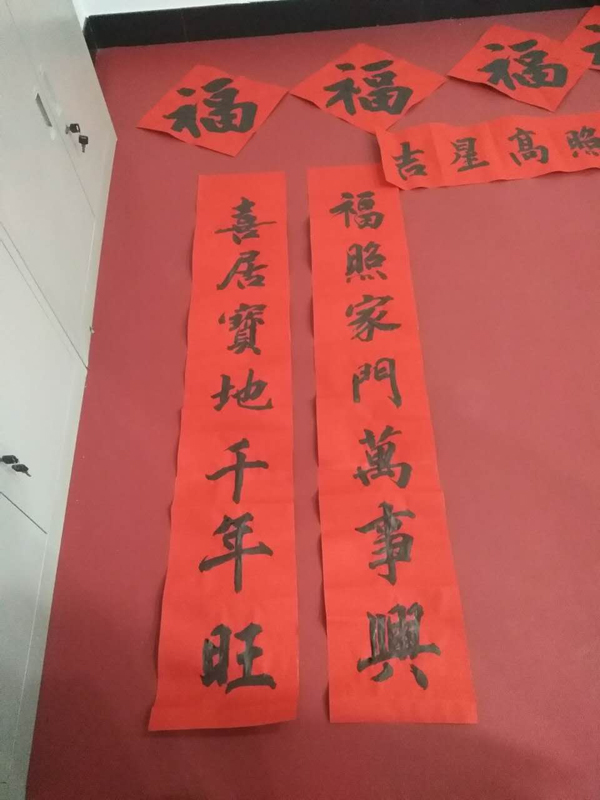 福
福
福
吉星高照
喜居寶地千年旺
福照家門萬事興